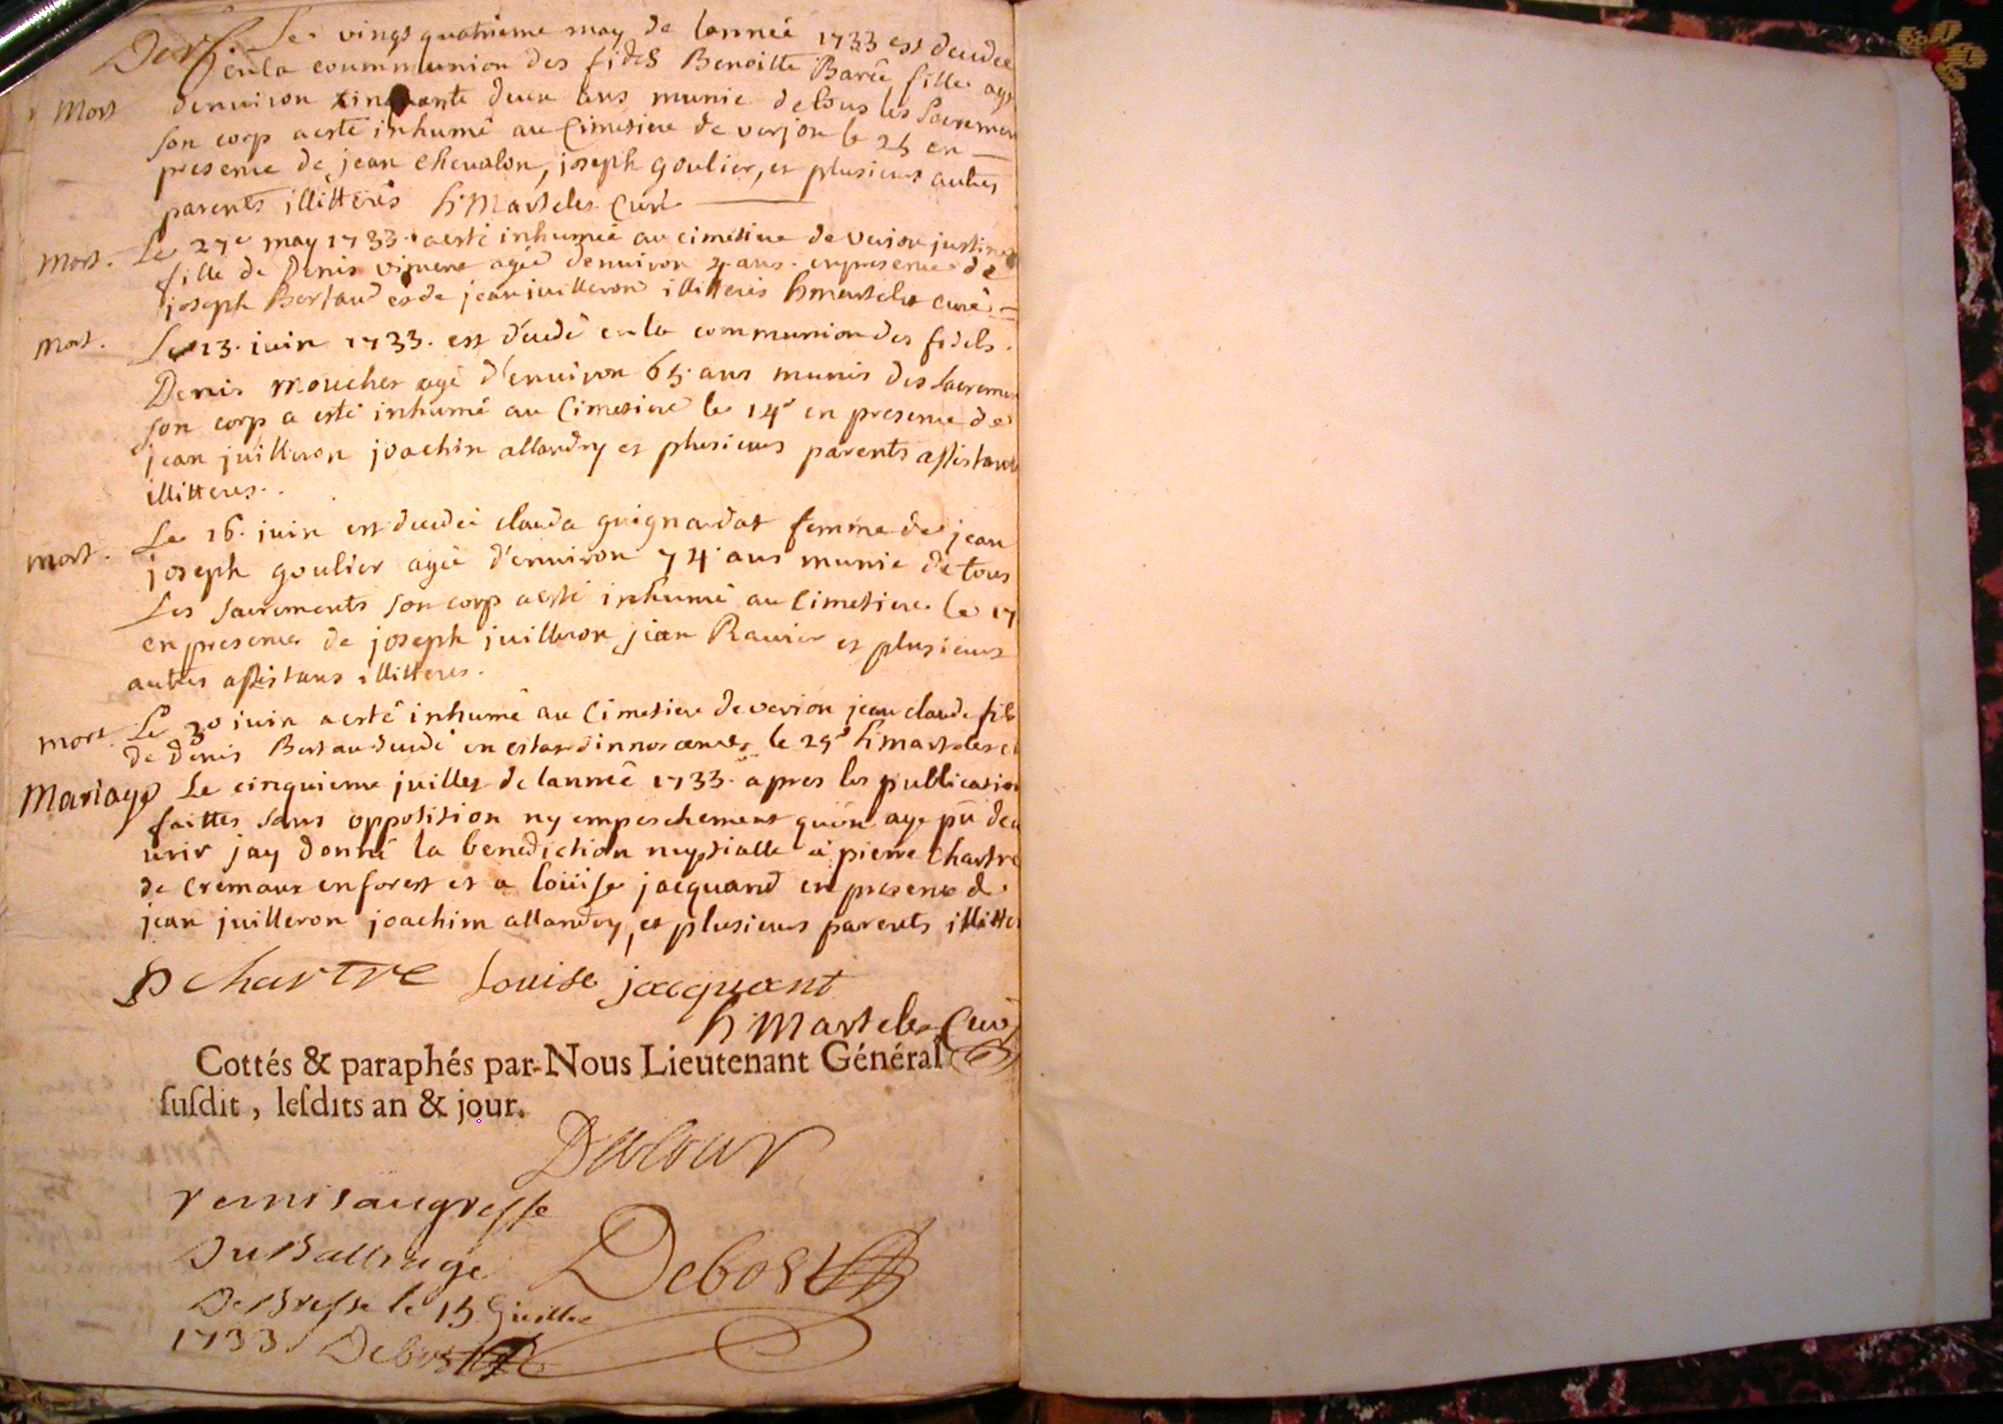 Le vingt quatrieme may de lanneé 1733 est decedeé
en la coummunion des fidels Benoitte Bareé fille ageé
Mort denuiron cinquante deux ans munie de tous les Sacremen
son corp a esté inhumé au Cimetiere de verjon le 25 en
presence de jean chevalon, joseph goulier, et plusieurs autres
parents illitterés h Martelet Curé
Mort. Le 27e may 1733. a esté inhumeé au cimetiere de verion justine
fille de Denis ageé denuiron 4 ans. en presence de
joseph Bertaud et de jean juilleron illitterés h martelet curé
Mort. Le 13. juin 1733. est décedé en la communion des fidels.
Denis mouchet agé d'enuiron 65 ans munis des sacremen
son corp a esté inhumé au Cimetiere le 14e en presence de
jean juilleron joachin allandry et plusieurs parents assistants
illitteres.
mort. Le 16. juin est decedeé clauda guignardat femme de jean
joseph goulier ageé d'enuiron 74 ans munie de tous
Les sacrements son corp a esté inhumé au Cimetiere le 17
en presence de joseph juilleron jean Ravier et plusieurs
autres assistans illitteres.
mort Le 30 juin a esté inhumé au Cimetiere de verion jean claude fils
de denis Bertaud decedé en estat dinnoscence le 29e h martelet c
Mariage Le cinquieme juillet de lanneé 1733. apres les publication
faittes sans opposition ny empeschement quon aye pû decou
urir jay donné la benediction nuptialle a pierre Chartre
de Cremaux en forest et a loüise jacquand en presence de
jean juilleron joachim allandry, et plusieurs parents illitte
P chartre Louise jacquant
h Martelet Curé
Cottés & paraphés par Nous Lieutenant Général
ſuſdit, leſdits an & jour.
remis au greffe
Du Balliage Debost
De Bresse le 15 Juillet
1733 Debost